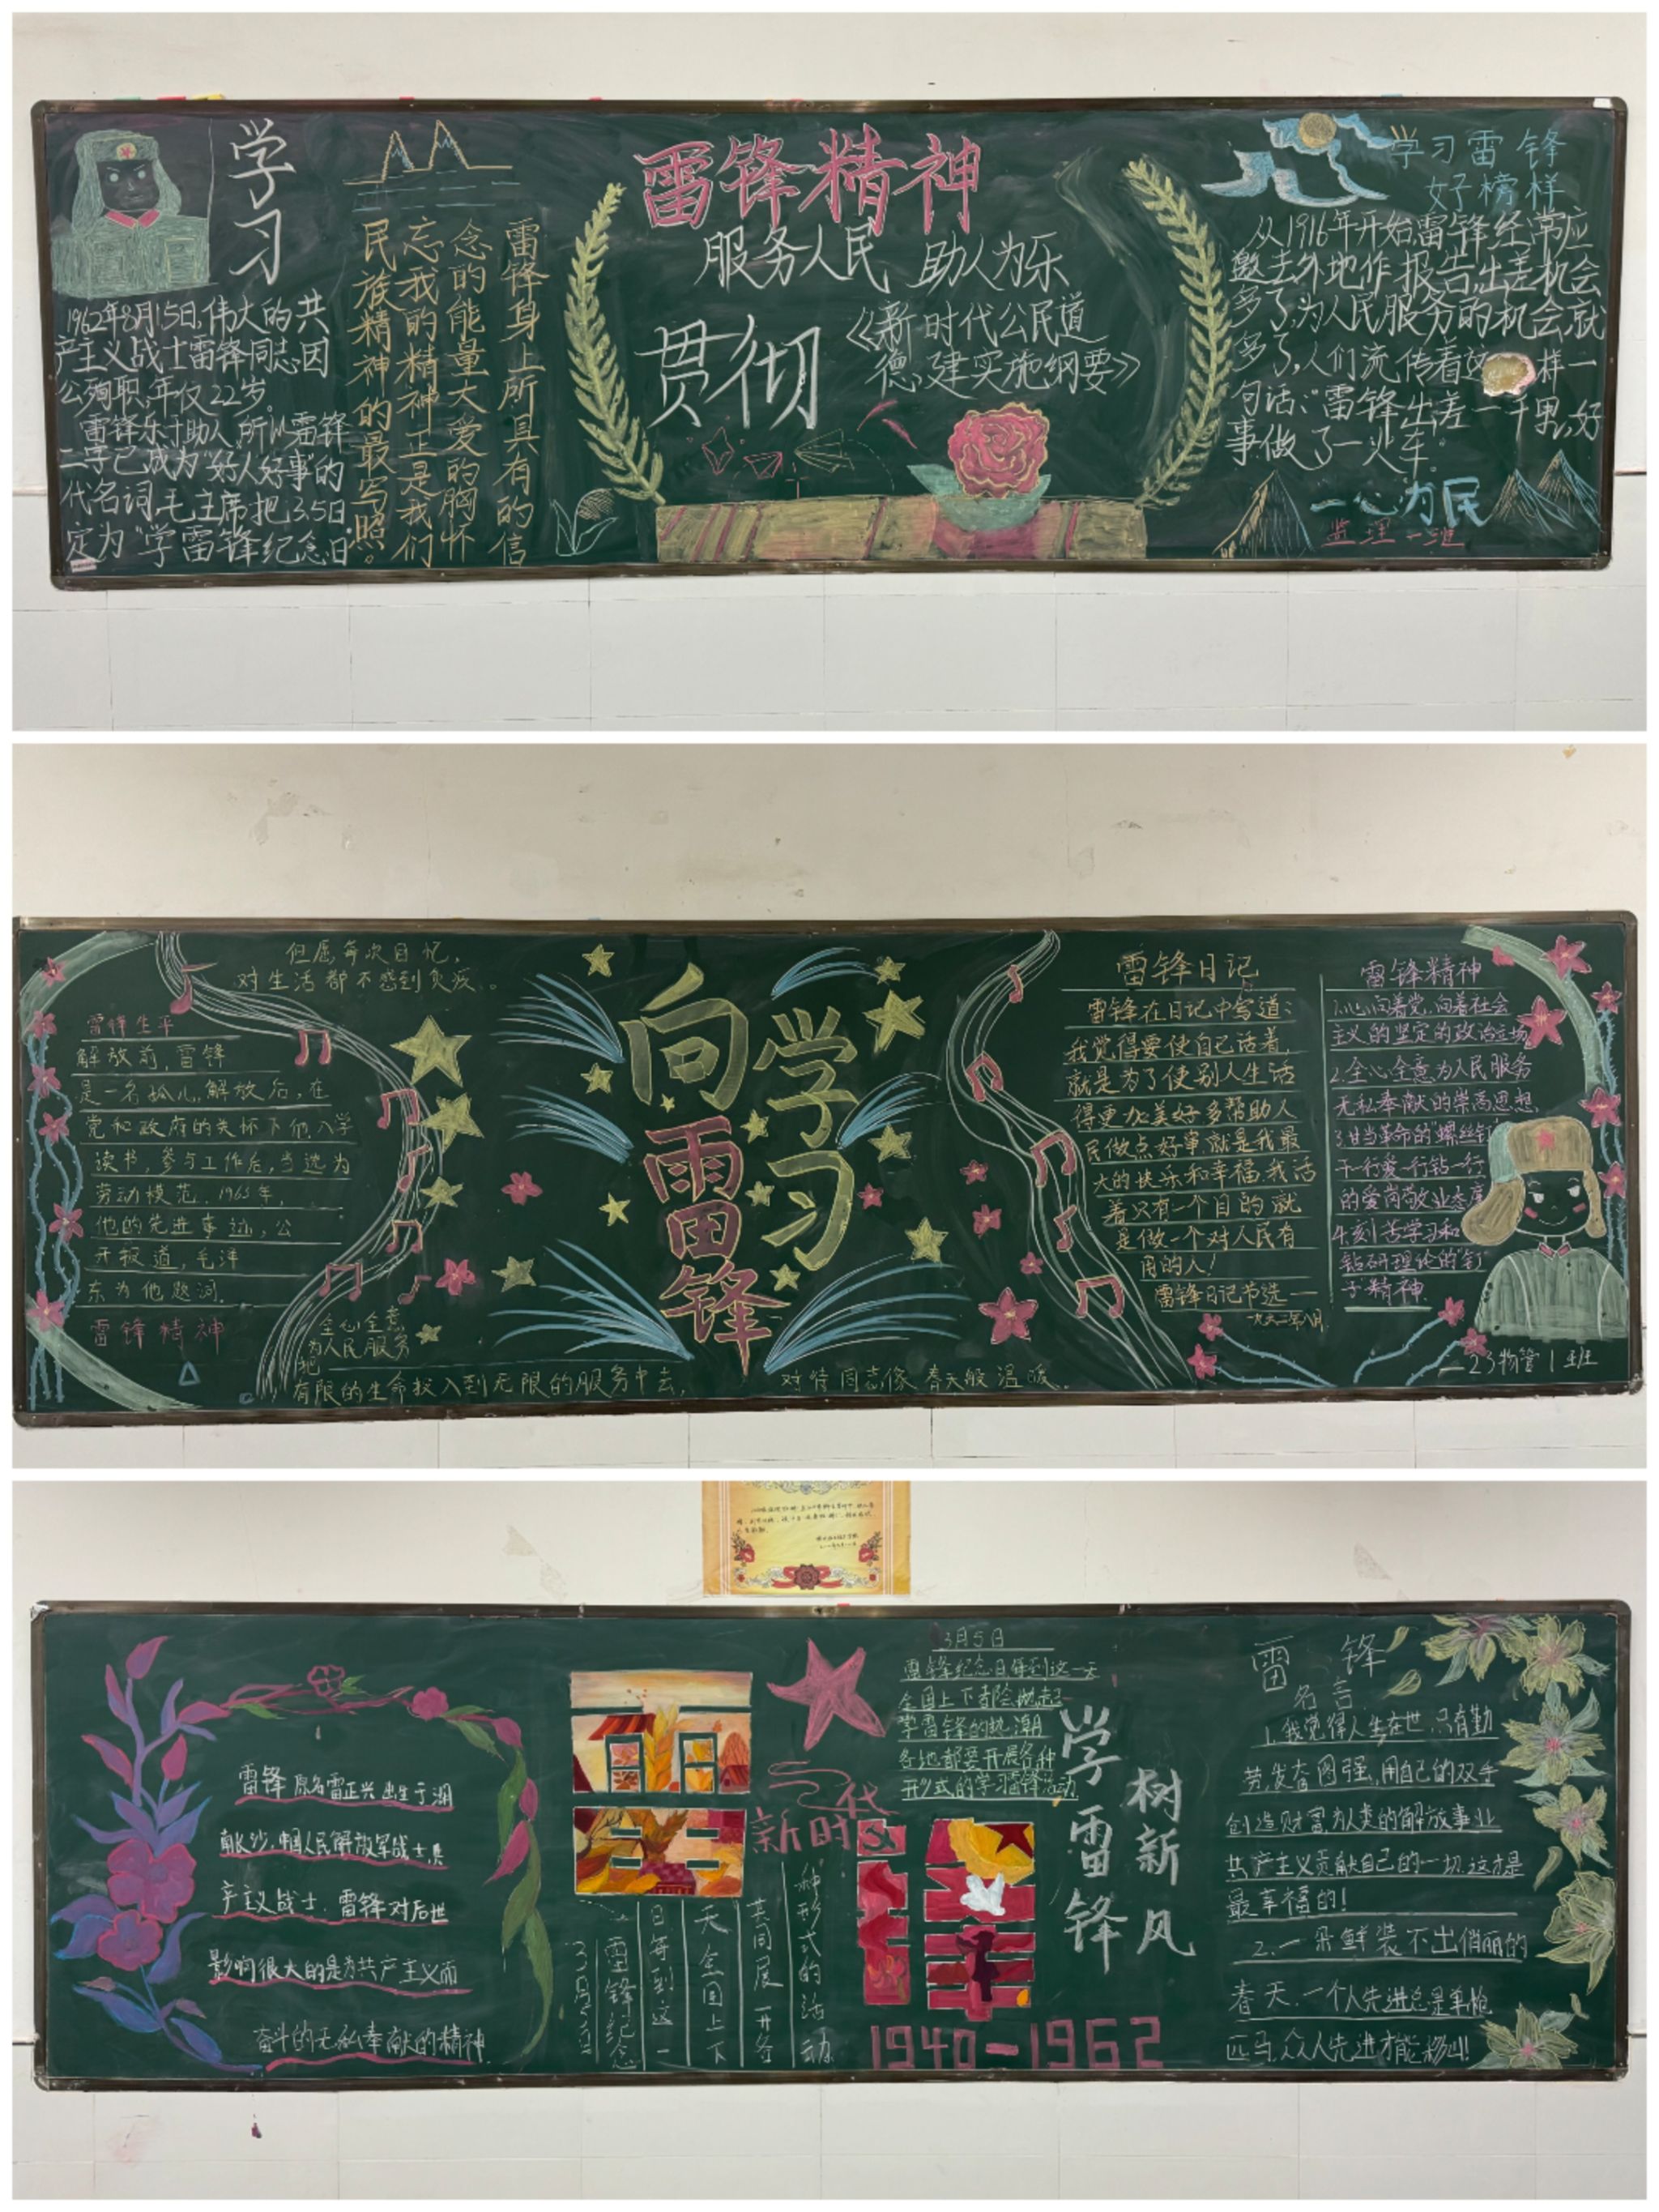 学习
1962年8月15日,伟大的共
产主义战士雷锋同志因
公殉职,年仅22岁。
雷锋乐于助人,所以雷锋
二字已成为“好人好事”的
代名词,毛主席把3.5日
定为“学雷锋纪念日”
雷锋身上所具有的信
念的能量大爱的胸怀
忘我的精神正是我们
民族精神的最写照。
雷锋精神
服务人民 助人为乐
贯彻
《新时代公民道
德建实施纲要》
学习雷锋
好榜样
从1916年开始,雷锋经常应
邀去外地作报告,出差机会
多了,为人民服务的机会就
多了,人们流传着这 样一
句话:“雷锋出差一千里,好
事做了一火车。
一心为民
监理一班
但愿每次回忆,
对生活都不感到负疚。
雷锋生平
解放前,雷锋
是一名孤儿,解放后,在
党和政府的关怀下他入学
读书,参与工作后,当选为
劳动模范.1963年,
他的先进事迹,公
开报道,毛泽
东为他题词.
雷锋精神
全心全意
为人民服务
把
有限的生命投入到无限的服务中去,
对待同志像春天般温暖。
向雷锋
学习
雷锋日记
雷锋在日记中写道:
我觉得要使自己活着,
就是为了使别人生活
得更加美好多帮助人
民做点好事,就是我最
大的快乐和幸福,我活
着只有一个目的就
是做一个对人民有
用的人!
雷锋日记节选一
一九六二年八月
雷锋精神
1.心向着党,向着社会
主义的坚定的政治立场
2.全心全意为人民服务
无私奉献的崇高思想
3甘当革命的“螺丝钉”
干一行爱一行钻一行
的爱岗敬业态度
4.刻苦学习和
钻研理论的“钉
子”精神
23物管1班
雷锋原名雷正兴出生于湖
南长沙.中国人民解放军战士,共
产主义战士.雷锋对后世
影响很大的是为共产主义而
奋斗的无私奉献的精神.
新时代
3月5日
雷锋纪念日每到这一天
全国上下都会掀起
学雷锋的热潮
各地都要开展各种
形式的学习雷锋活动
3月5日
雷锋纪念
日每到这一
天全国上下
共同展开各
种形式的活动
1940-1962
学雷锋
树新风
雷锋
名言
1.我觉得人生在世.只有勤
劳,发奋图强,用自己的双手
创造财富,为人类的解放事业
共产主义贡献自己的一切.这才是
最幸福的!
2.一朵鲜装不出俏丽的
春天.一个人先进总是单枪
匹马,众人先进才能移山!